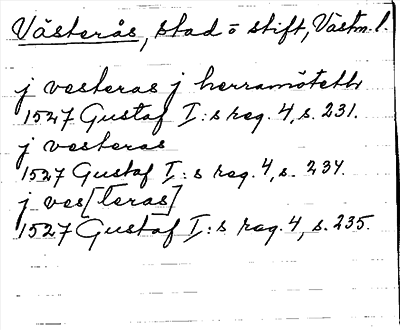 Västerås, stad o stift, Västm. l.
j vesteras j herramötett
1527 Gustaf I:s reg. 4, s. 231.
j vesteras
1527 Gustaf I:s reg. 4, s. 234.
j ves[teras]
1527 Gustaf I:s reg. 4, s. 235.